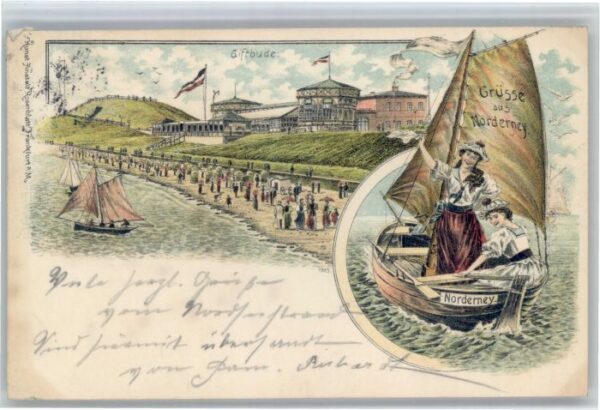 Giftbude.
Grüsse
aus
Norderney.
Norderney.
Viele herzl. Grüße
vom Nordseestrand
Sind hiermit übersandt
von Fam.